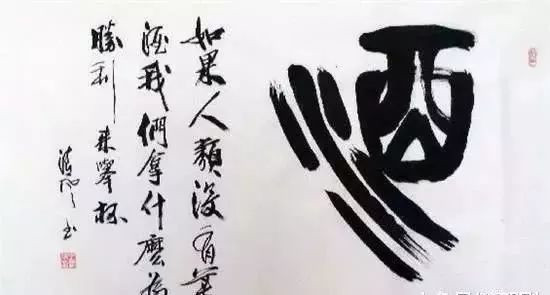 酒
如果人類沒有美
酒我們拿什麼為
勝利來舉杯